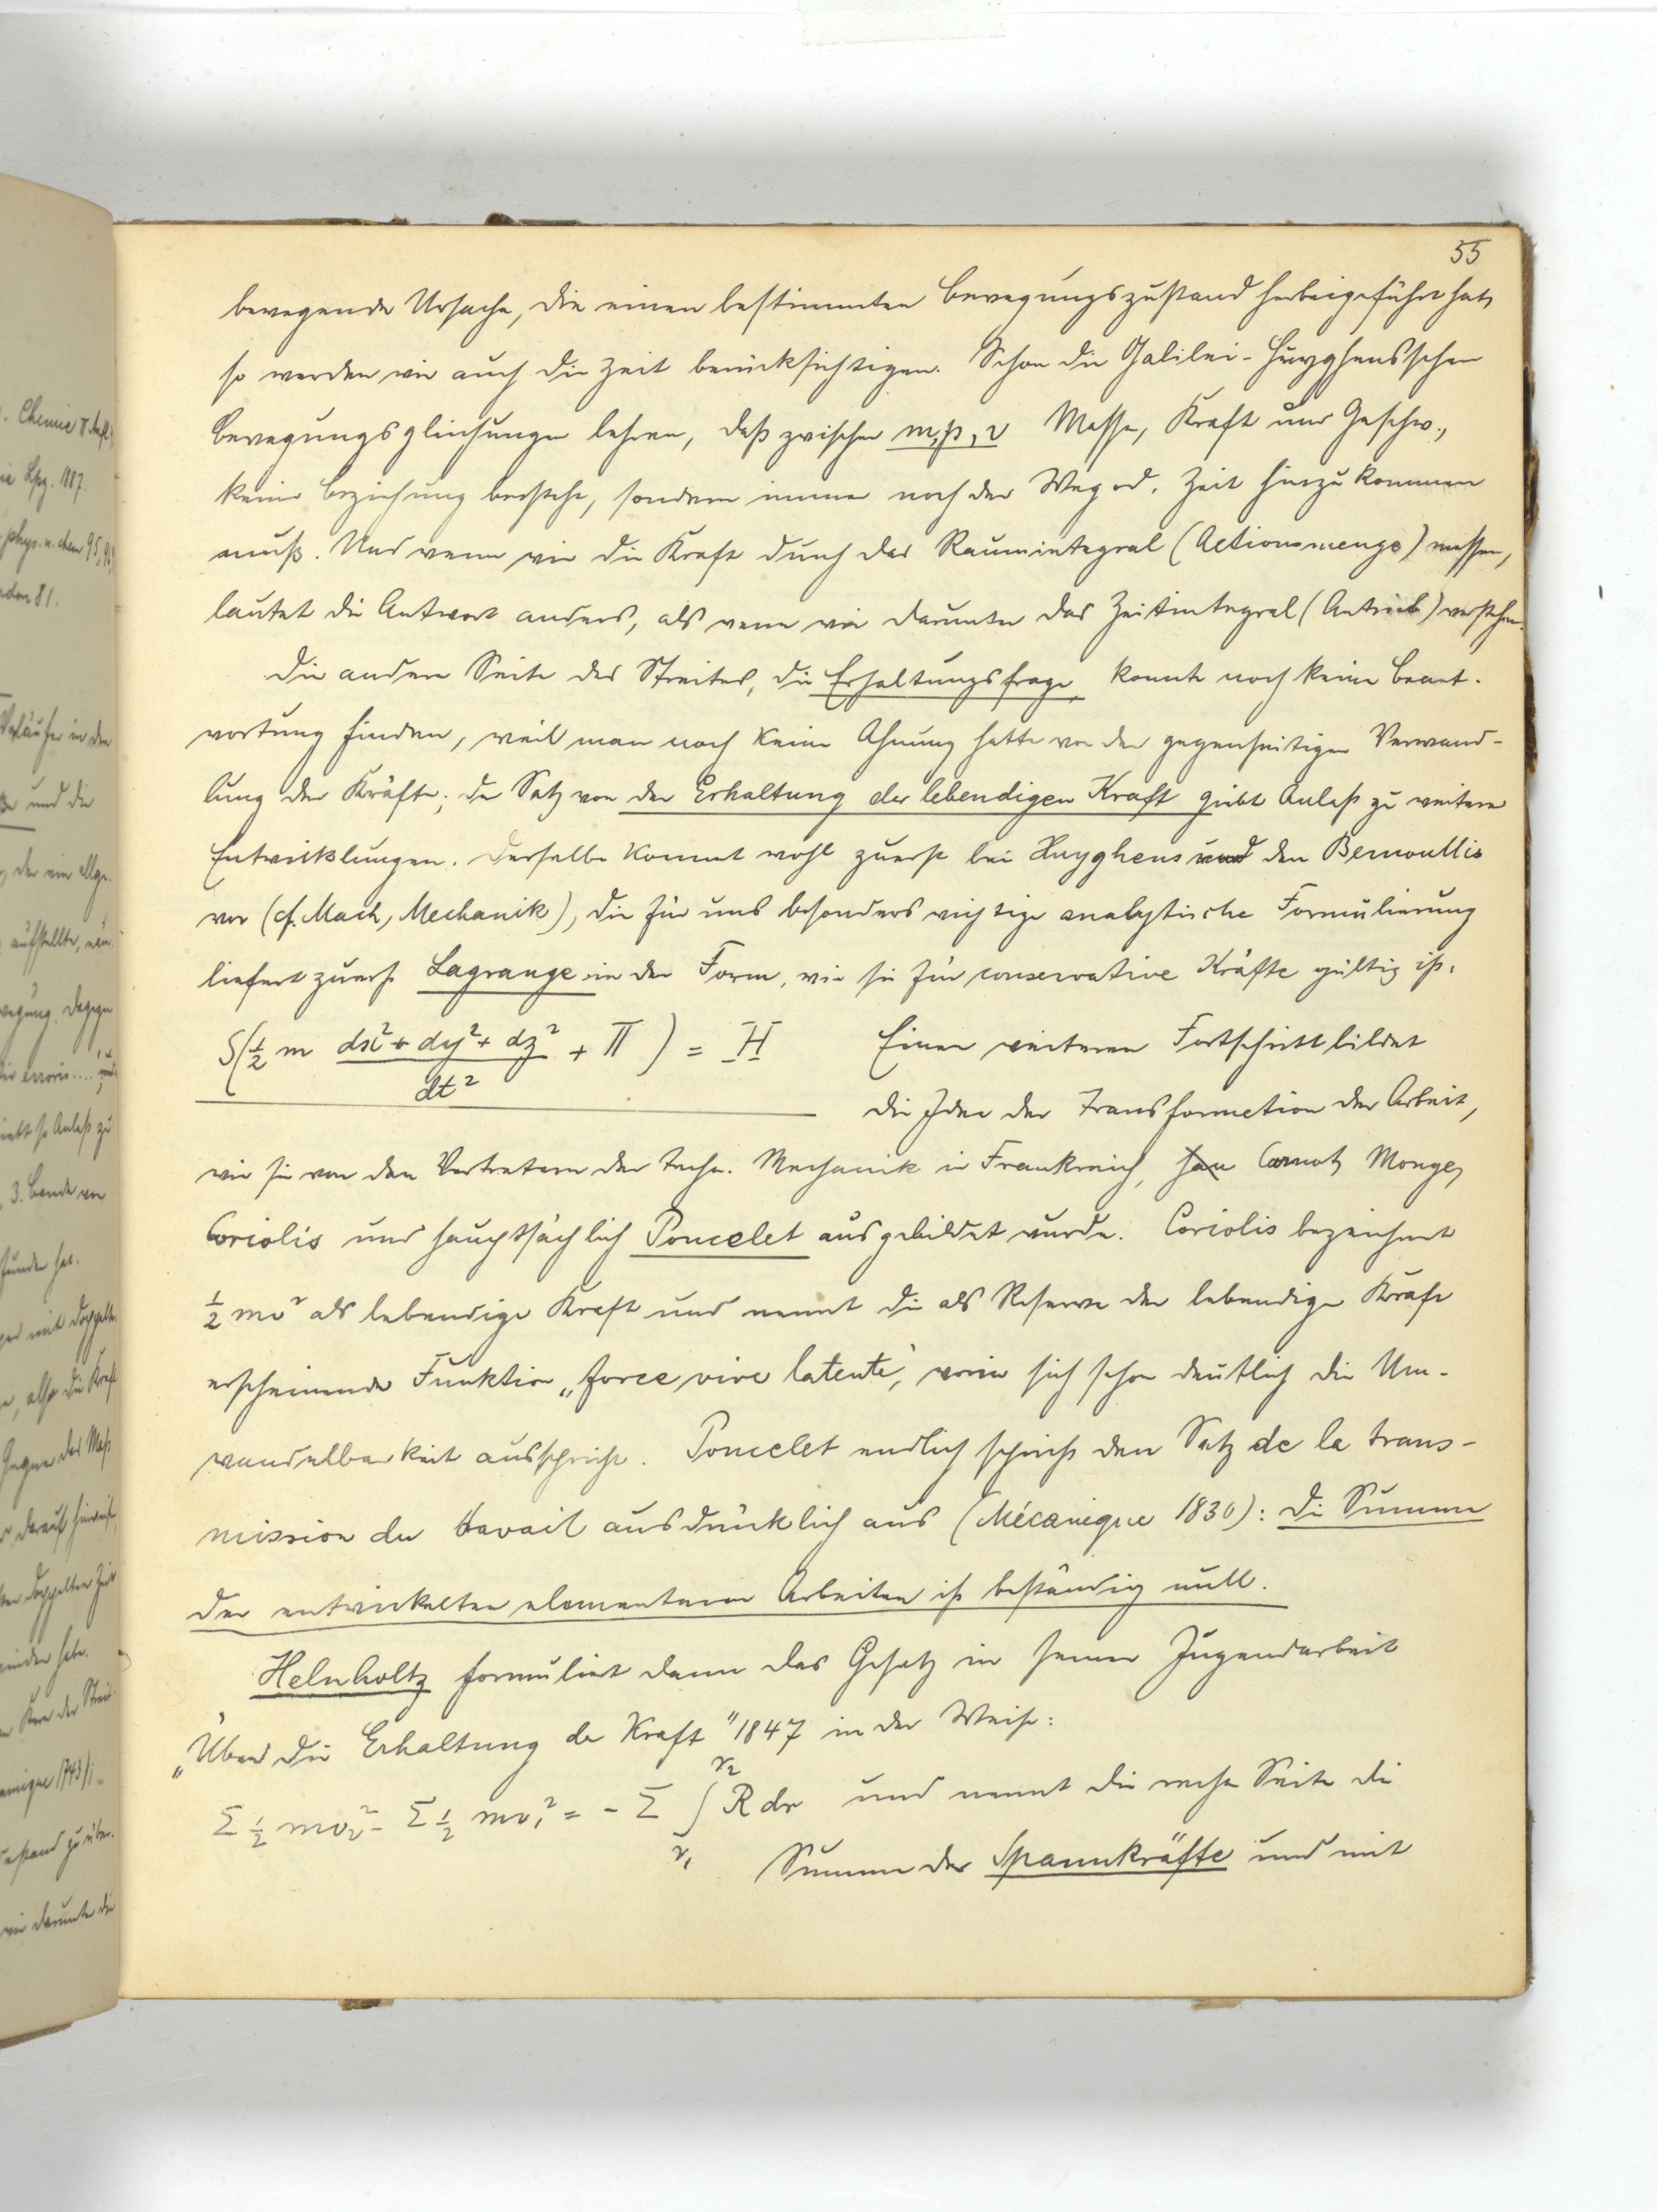 55
bewegende Ursache, die einen bestimmten Bewegungszustand herbeigeführt hat,
so werden wir auch die Zeit berücksichtigen. Schon die Galilei-Huyghensschen
Bewegungsgleichungen lehren, daß zwischen m, p, v Masse, Kraft und Geschw.,
keine Beziehung bestehe, sondern immer noch der Weg od. Zeit hinzukommen
muß. Und wenn wir die Kraft durch das Raumintegral (Actionsmenge) messen,
lautet die Antwort anders, als wenn wir darunter das Zeitintegral (Antrieb) verstehen.
Die andere Seite des Streites, die Erhaltungsfrage, konnte noch keine Beant-
wortung finden, weil man noch keine Ahnung hatte von der gegenseitigen Verwand-
lung der Kräfte; der Satz von der Erhaltung der lebendigen Kraft giebt Anlaß zu weitern
Entwicklungen. Derselbe kommt wohl zuerst bei Huyghens und den Bernoullis
vor (cf. Mach, Mechanik), die für uns besonders wichtige analytische Formulierung
liefert zuerst Lagrange in der Form, wie sie für conservative Kräfte gültig ist.
S(½ m (dx² + dy² + dz²)/dt² + Π) = H Einen weiteren Fortschritt bildet
die Idee der Transformation der Arbeit,
wie sie von den Vertretern der techn. Mechanik in Frankreich, Carnot, Monge,
Coriolis und hauptsächlich Poncelet ausgebildet wurde. Coriolis bezeichnet
½ mv² als lebendige Kraft und nennt die als Reserve der lebendigen Kraft
erscheinende Funktion „force vive latente", worin sich schon deutlich die Um-
wandelbarkeit ausspricht. Poncelet endlich spricht den Satz de la trans-
mission du travail ausdrücklich aus (Mécanique 1830): die Summe
der entwickelten elementaren Arbeiten ist beständig null.
Helmholtz formuliert dann das Gesetz in seiner Jugendarbeit
„Über die Erhaltung der Kraft" 1847 in der Weise:
Σ ½ mv₂² - Σ ½ mv₁² = - Σ ∫ R dr und nennt die rechte Seite die
r₂
r₁
Summe der Spannkräfte und mit